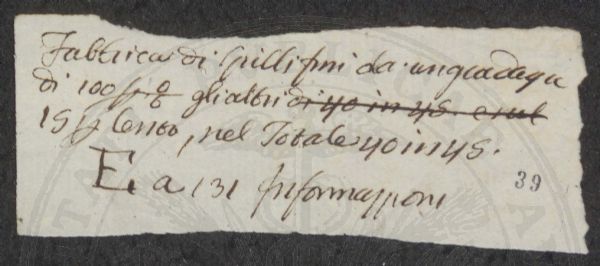 Fabbrica di Spilli fini da un guadagn
di 100 p % gli altri di 40 in 45. e sul
15 p Cento, nel Totale 40 in 45.
E a 131 Informazioni
39